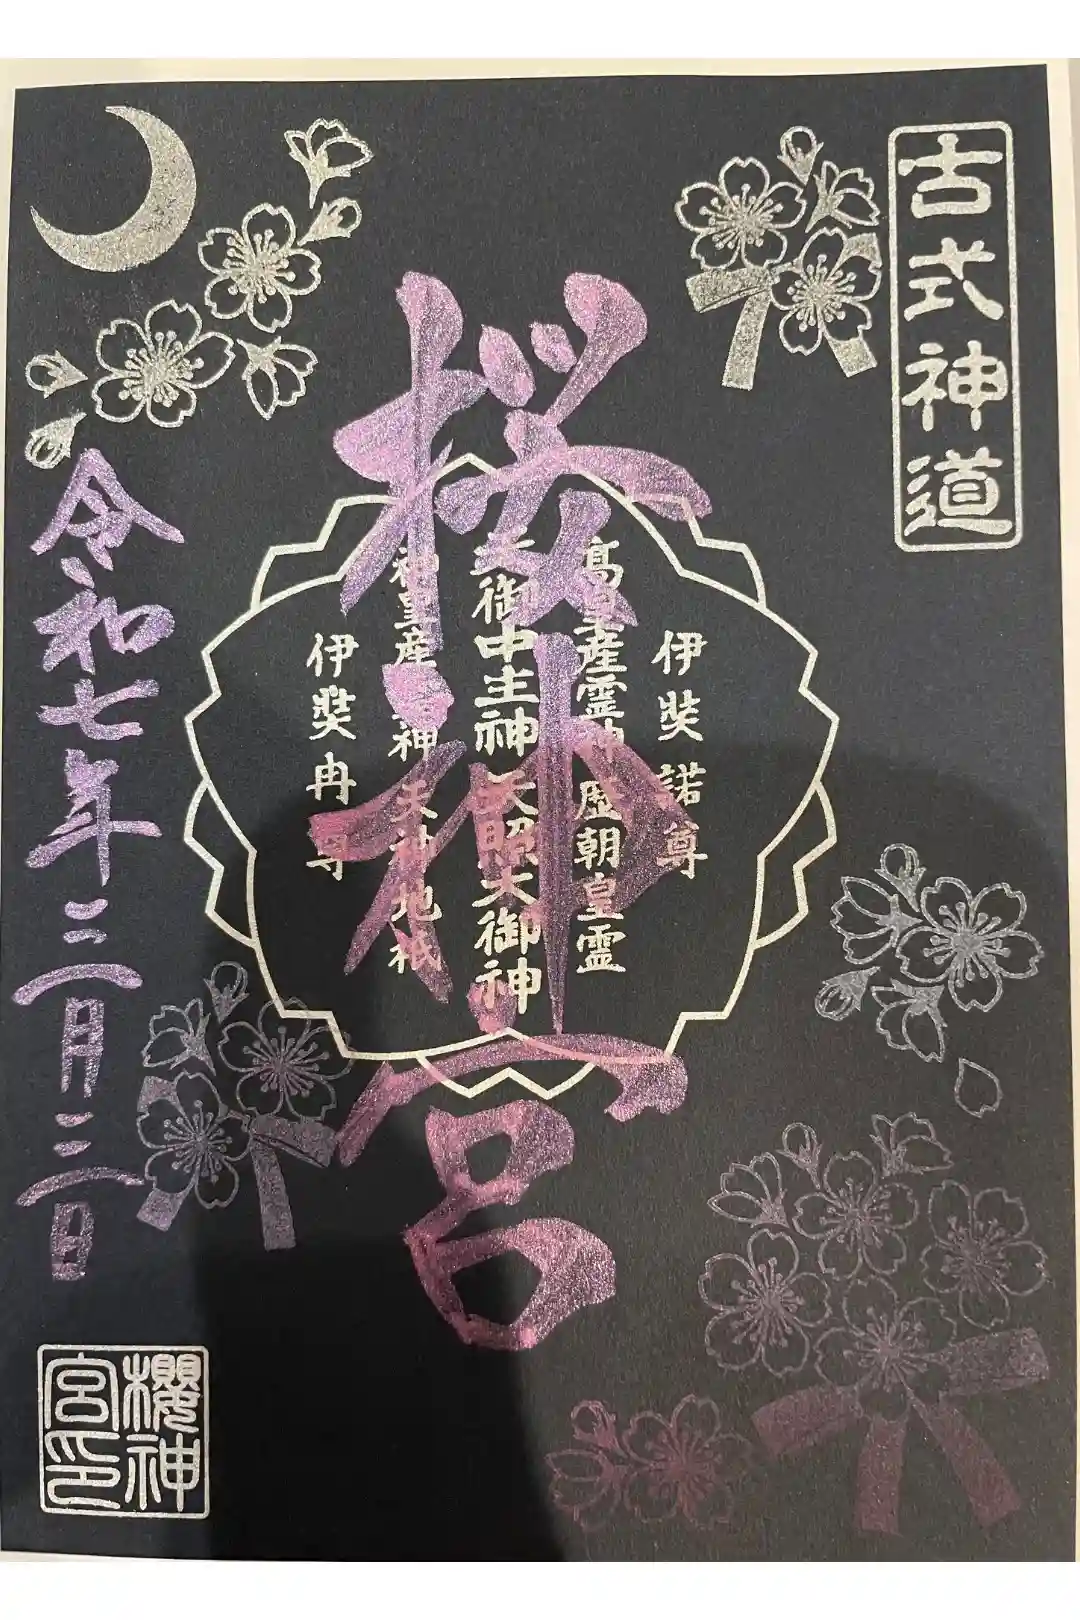 古式神道
桜神宮
伊奘諾尊
高皇産霊神 歴朝皇霊
天御中主神 天照大御神
神皇産霊神 天神地祇
伊奘冉尊
令和七年三月三日
櫻神
宮印